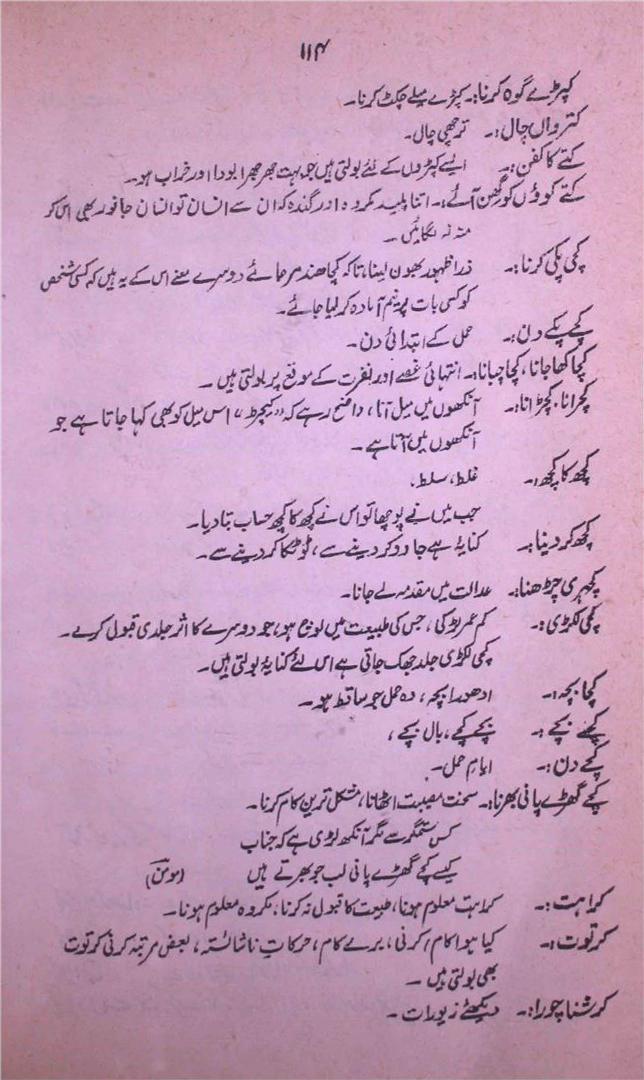 ۱۱۴
کپڑے گوہ کرنا:۔ کپڑے میلے چکٹ کرنا۔
کترواں چال:۔ ترچھی چال۔
کتے کا کفن:۔ ایسے کپڑوں کے لئے بولتی ہیں جو بہت جھرجھرا بودا اور خراب ہو۔
کتے کوؤں کو گھن آئے:۔ اتنا پلید مکروہ اور گندہ کہ ان سے انسان تو انسان جانور بھی اس کر
منہ نہ لگائیں۔
کچی پکی کرنا:۔ ذرا ظہور بھون لینا، تاکہ کچا ھند مر جائے دوسرے معنے اس کے یہ ہیں کہ کسی شخص
کو کسی بات پر نیم آمادہ کر لیا جائے۔
کچے پکے دن:۔ حمل کے ابتدائی دن۔
کچا کھا جانا، کچا چبانا:۔ انتہائی غصے اور نفرت کے موقع پر بولتی ہیں۔
کچرانا، کچڑانا:۔ آنکھوں میں میل آنا، واضح رہے کہ "کیچڑ" اس میل کو بھی کہا جاتا ہے جو
آنکھوں میں آتا ہے۔
کچھ کا کچھ:۔ غلط، سلط،
جب میں نے پوچھا تو اس نے کچھ کا کچھ حساب بتا دیا۔
کچھ کر دینا:۔ کنایۃً ہے جادو کر دینے سے، ٹوٹکا کر دینے سے۔
کچہری چڑھنا:۔ عدالت میں مقدمہ لے جانا۔
کچی لکڑی:۔ کم عمر لڑکی، جس کی طبیعت میں لوچ ہو، جو دوسرے کا اثر جلدی قبول کرے۔
کچی لکڑی جلد جھک جاتی ہے اس لئے کنایۃً بولتی ہیں۔
کچا بچہ:۔ ادھورا بچہ، وہ حمل جو ساقط ہو۔
کچے بچے:۔ بچے کچے، بال بچے،
کچے دن:۔ ایام حمل۔
کچے گھڑے پانی بھرنا:۔ سخت مصیبت اٹھانا، مشکل ترین کام کرنا۔
کس ستمگر سے مگر آنکھ لڑی ہے کہ جناب
کیسے کچے گھڑے پانی لب جو بھرتے ہیں (مومن)
کراہت:۔ کراہت معلوم ہونا، طبیعت کا قبول نہ کرنا، مکروہ معلوم ہونا۔
کرتوت:۔ کیا ہوا کام، کرنی، برے کام، حرکات ناشائستہ، بعض مرتبہ کرنی کرتوت
بھی بولتی ہیں۔
کرشنا چورا:۔ دیکھئے زیورات۔